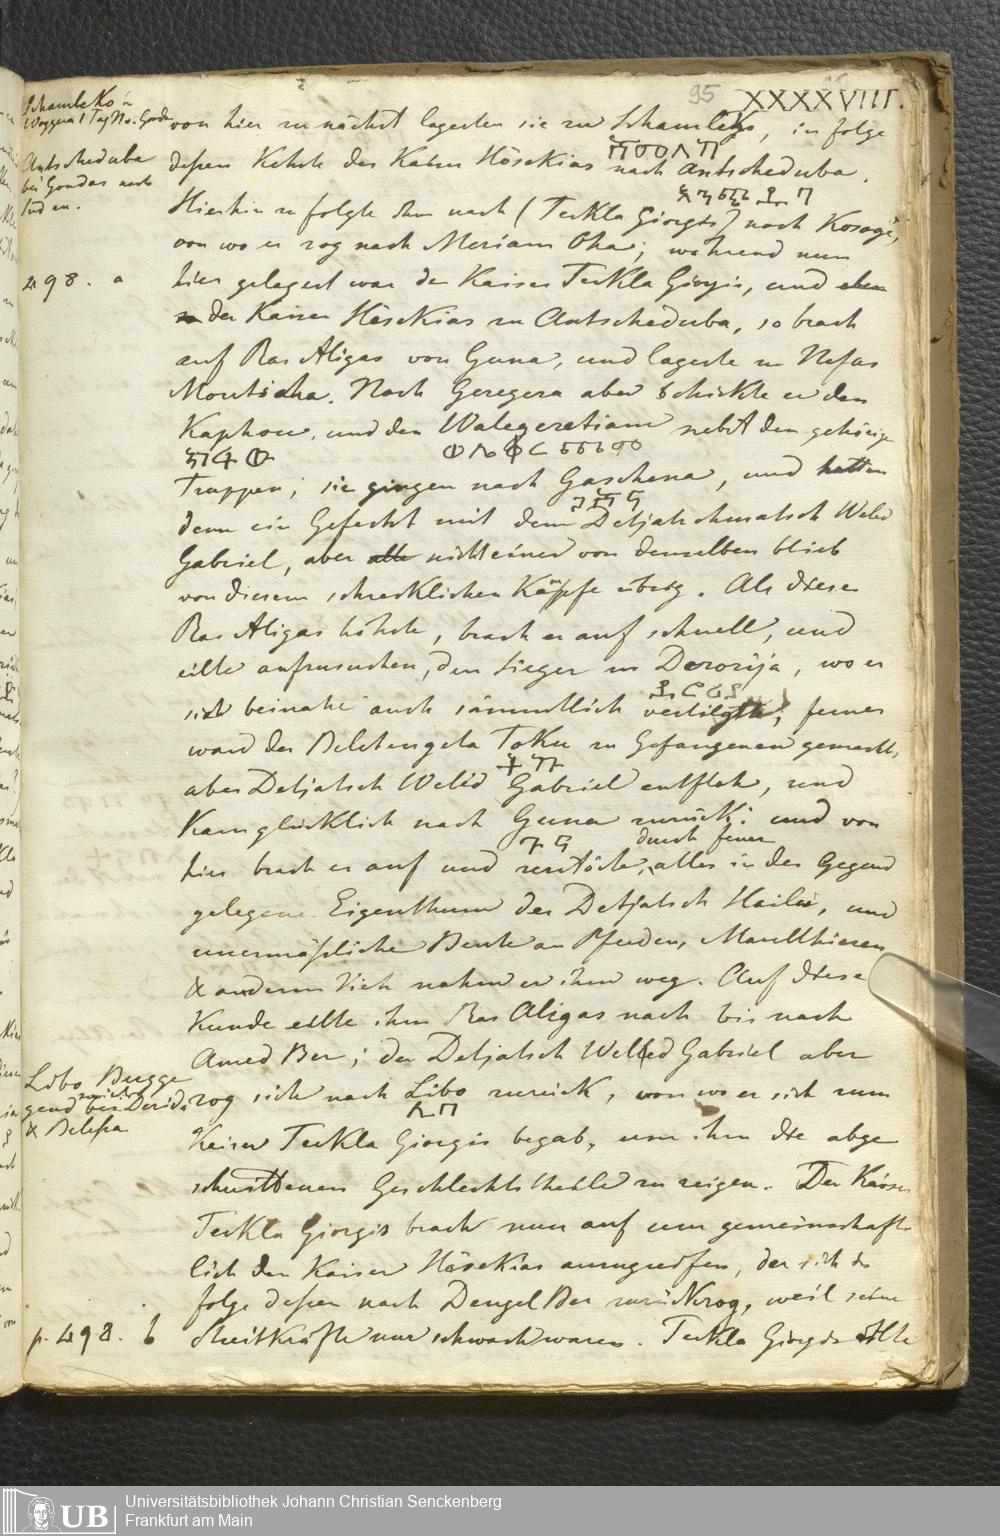 95
XXXXVIII.
SchamleKo in
Woggera 1 Tag No. Gondar
Antscheduba
bei Gondar nach
Süden.
498. a
von hier zu nächst lagerten sie zu SchamleKo, in folge
deßen Kehrte der Kaiser HèseKias nach Antscheduba.
Hierhin folgte ihm nach (TeKla Giorgis) nach Kosogè,
von wo er zog nach Meriam Oha; während nun
hier gelagert war der Kaiser TeKla Giorgis, und
der Kaiser HèseKias zu Antscheduba, so brach
auf Ras Aligas von Guna, und lagerte zu Nefas
Moutscha. Nach Geregera aber schikte er den
Kaphou, und den Walegeretiam nebst den gehörigen
Truppen; sie gingen nach Gaschena, und hatten
denn ein Gefecht mit dem Detjatschmatsch Weled
Gabriel, aber nicht einer von denselben blieb
von diesem schrecklichen Kämpfe übrig. Als dieses
Ras Aligas hörte, brach er auf schnell, und
eilte aufzusuchen, den Sieger zu Derorija, wo er
sich beinahe auch sämmtlich vertilgte; ferner
ward der Belatengeta ToKu zu Gefangenen gemacht,
aber Detjatsch Weled Gabriel entfloh, und
Kam glücklich nach Guna zurück: und von
hier brach er auf und zerstöhrte durch feuer alles in der Gegend
gelegene Eigenthum der Detjatsch Hailu, und
unermäßliche Beute an Pferden, Maulthieren
& anderm Vieh nahm er ihm weg. Auf diese
Kunde eilte ihm Ras Aligas nach bis nach
Amed Ber; der Detjatsch Weled Gabriel aber
zog sich nach Libo zurück, von wo er sich zum
Keiser TeKla Giorgis begab, um ihm die abge
schnittenen Geschlechtstheile zu zeigen. Der Kaiser
TeKla Giorgis brach nun auf um gemeinschaft
lich den Kaiser HèseKias anzugreifen, der sich in
folge deßen nach Dengel Ber zurückzog, weil seine
Streitkräfte nur schwach waren. TeKla Giorgis
Libo, Berggegend
zwischen Derida
& Belesa
p. 498. b
Universitätsbibliothek Johann Christian Senckenberg
Frankfurt am Main
UB